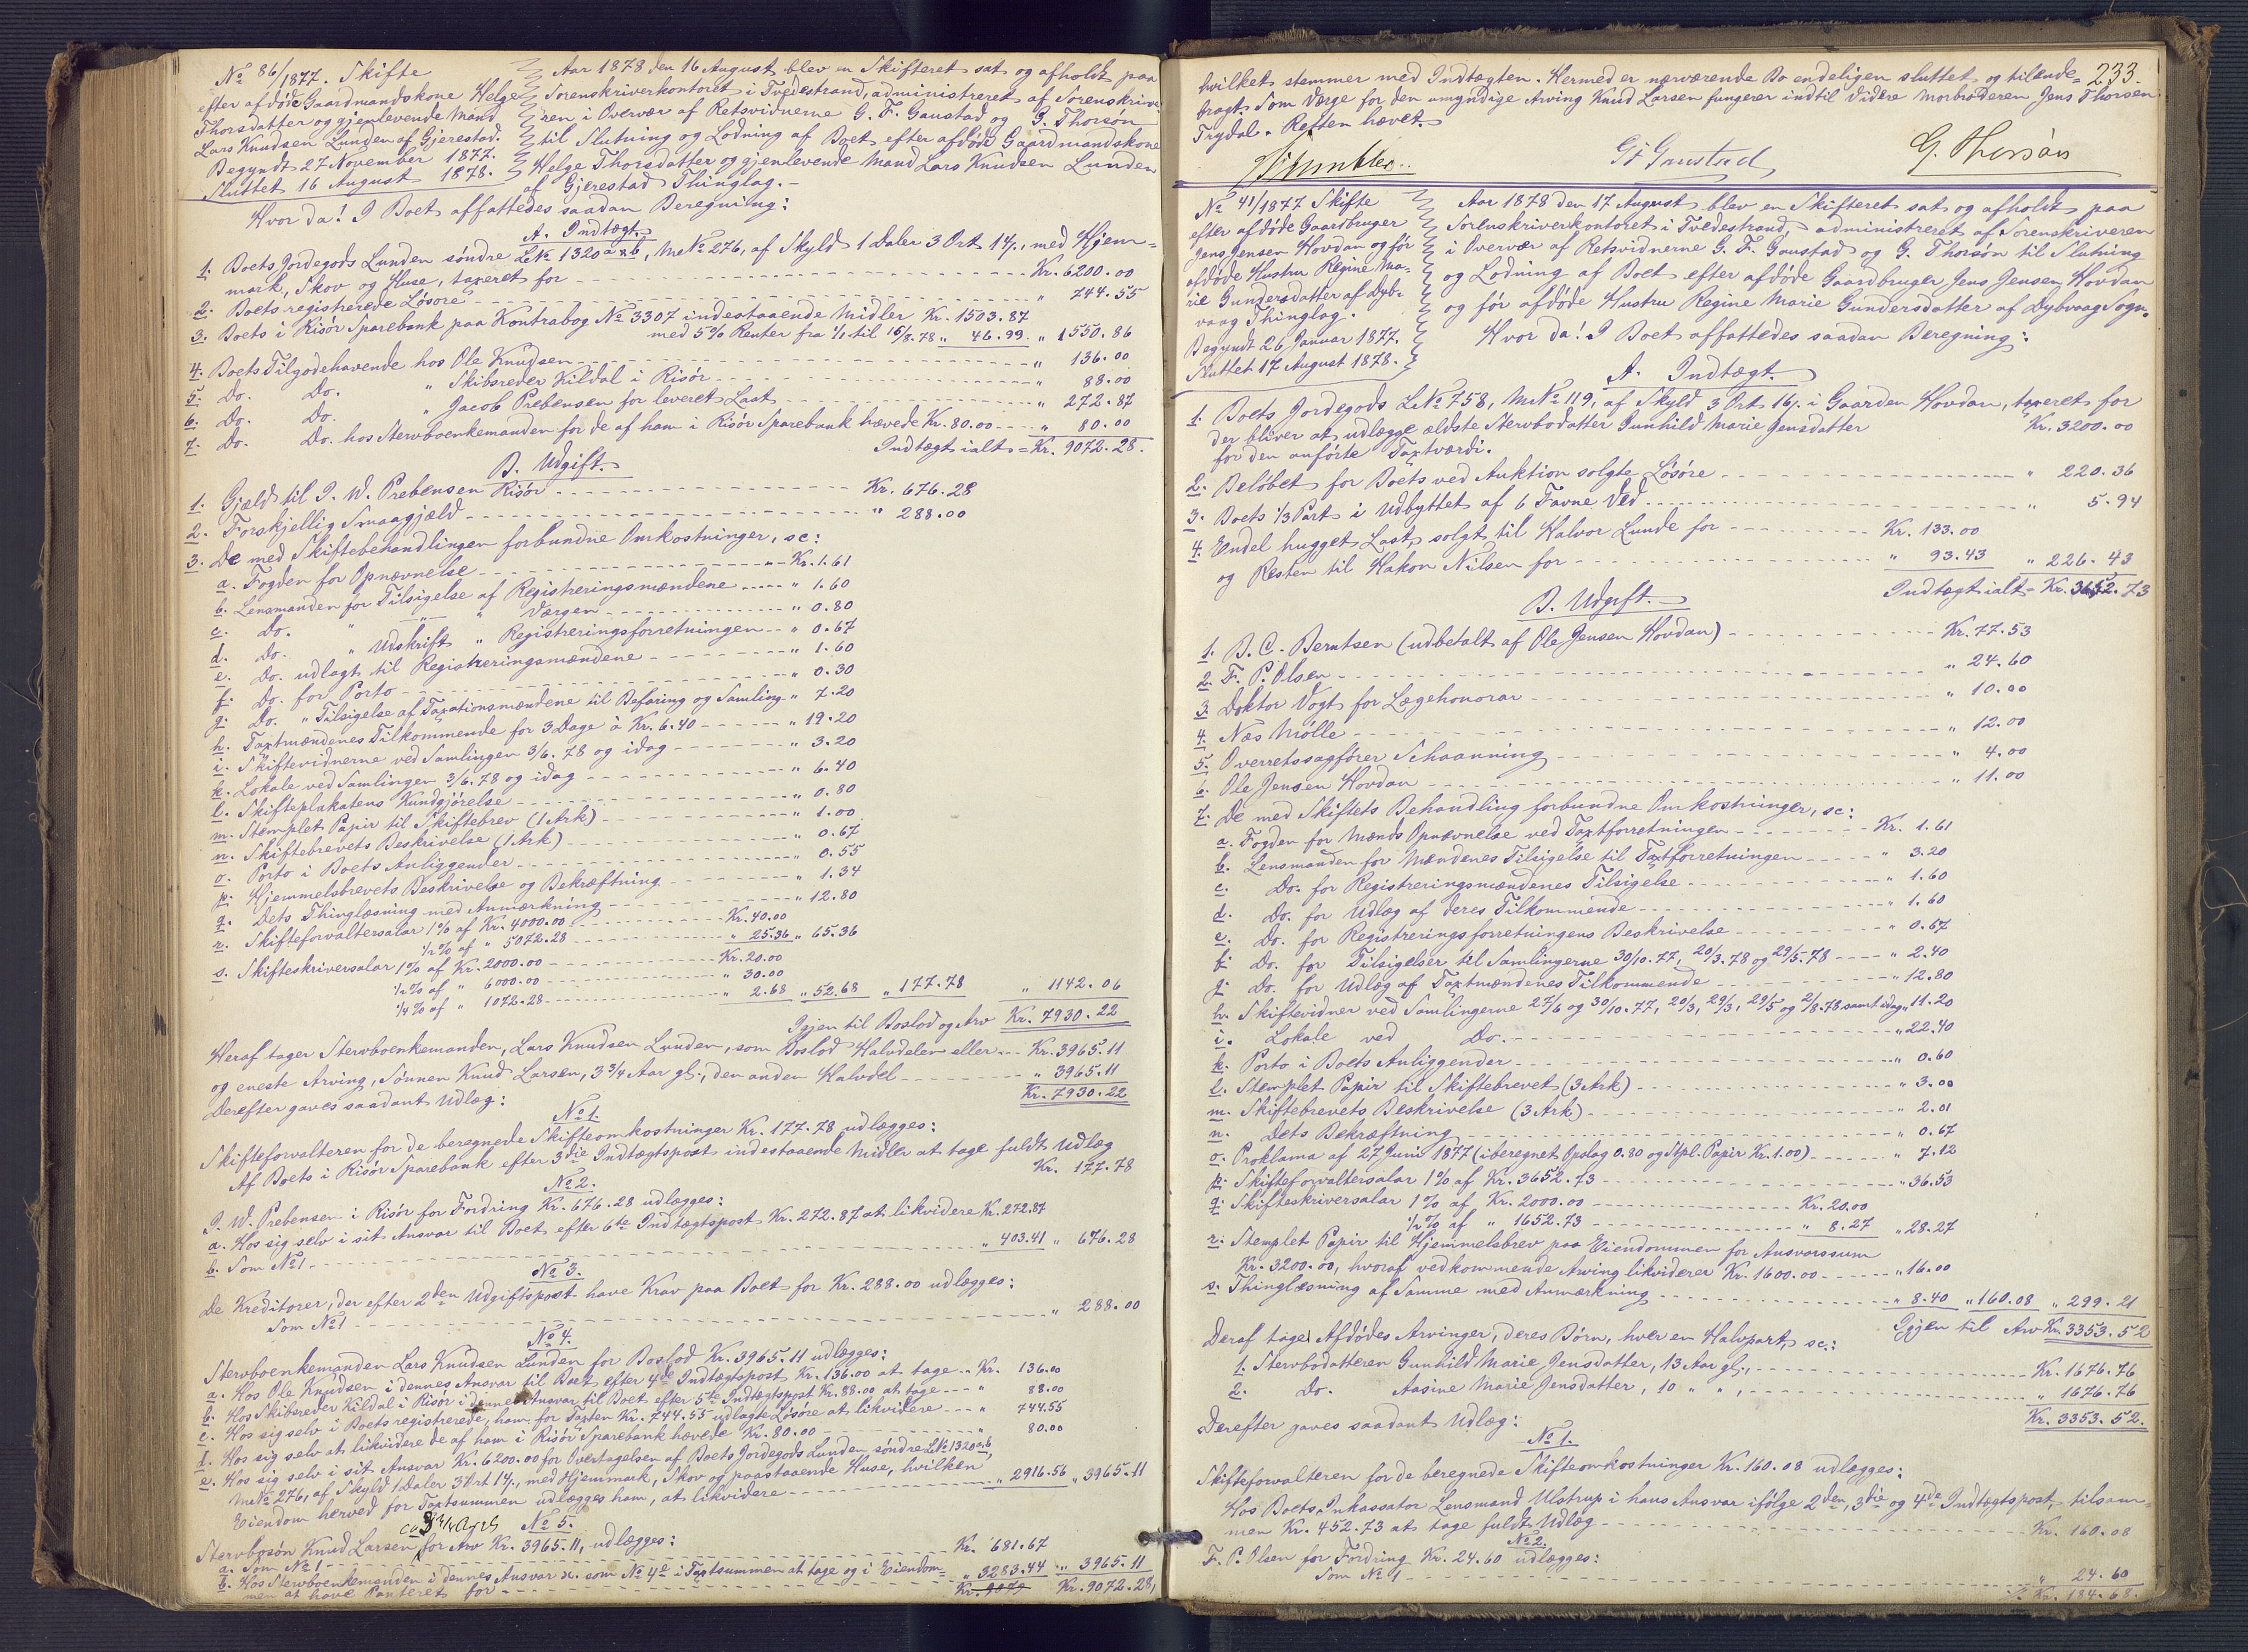 No 86/1877. Skifte
efter afdöde Gaardmandskone Helge
Thorsdatter og gjenlevende Mand
Lars Knudsen Lunden af Gjerestad.
Begyndt 27 November 1877.
Sluttet 16 August 1878.
Aar 1878 den 16 August blev en Skifteret sat og afholdt paa
Sorenskriverkontoret i Tvedestrand, administreret af Sorenskrive
ren i Overvær af Retsvidnerne G. F. Gaustad og G. Thorsøn
til Slutning og Lodning af Boet efter afdöde Gaardmandskone
Helge Thorsdatter og gjenlevende Mand Lars Knudsen Lunden
af Gjerestad Thinglag.-
Hvor da! I Boet affattedes saadan Beregning:
A. Indtægt.
1. Boets Jordegods Lunden söndre LNo 1320 a & b, MNo 276, af Skyld 1 Daler 3 Ort 14/., med Hjem-
mark, Skov og Huse, taxeret for Kr. 6200.00
2. Boets registrerede Lösöre " 744.55
3. Boets i Risör Sparebank paa Kontrabog No 3307 indestaaende Midler Kr. 1503.87
med 5% Renter fra 1/1 til 16/8.78 " 46.99. " 1550.86
4. Boets Tilgodehavende hos Ole Knudsen " 136.00
5. Do. Do. " Skibsreder Kildal i Risör " 88.00
6. Do. Do. " Jacob Prebensen for leveret Last " 272.87
7. Do. Do. hos Stervboenkemanden for de af ham i Risör Sparebank hævede Kr. 80.00 " 80.00
Indtægt ialt = Kr. 9072.28.
B. Udgift.
1. Gjæld til J. W. Prebensen Risör Kr. 676.28
2. Forskjellig Smaagjæld " 288.00
3. De med Skiftebehandlingen forbundne Omkostninger, sc:
a. Fogden for Opnævnelse Kr. 1.61
b. Lensmanden for Tilsigelse af Registreringsmændene " 1.60
c. Do. " " " Værgen " 0.80
d. Do. " Udskrift " Registreringsforretningen " 0.67
e. Do. udlagt til Registreringsmændene " 1.60
f. Do. for Porto " 0.30
g. Do. " Tilsigelse af Taxationsmændene til Befaring og Samling " 7.20
h. Taxtmændenes Tilkommende for 3 Dage à Kr. 6.40 " 19.20
i. Skiftevidnerne ved Samlingen 3/6.78 og idag " 3.20
k. Lokale ved Samlingen 3/6.78 og idag " 6.40
l. Skifteplakatens Kundgjörelse " 0.80
m. Stemplet Papir til Skiftebrev (1 Ark) " 1.00
n. Skiftebrevets Beskrivelse (1 Ark) " 0.67
o. Porto i Boets Anliggender " 0.55
p. Hjemmelsbrevets Beskrivelse og Bekræftning " 1.34
q. Dets Thinglæsning med Anmærkning " 12.80
r. Skifteforvaltersalar 1% af Kr. 4000.00 Kr. 40.00
1/2% af " 5072.28 " 25.36 " 65.36
s. Skifteskriversalar 1% af Kr. 2000.00 Kr. 20.00
1/2% af " 6000.00 " 30.00
1/4% af " 1072.28 " 2.68 " 52.68 " 177.78 " 1142.06
Igjen til Boslod og Arv Kr. 7930.22
Heraf tager Stervboenkemanden, Lars Knudsen Lunden, som Boslod Halvdelen eller Kr. 3965.11
og eneste Arving, Sönnen Knud Larsen, 3 3/4 Aar gl., den anden Halvdel " 3965.11
Kr. 7930.22
Derefter gaves saadant Udlæg:
No 1.
Skifteforvalteren for de beregnede Skifteomkostninger Kr. 177.78 udlægges:
Af Boets i Risör Sparebank efter 3die Indtægtspost indestaaende Midler at tage fuldt Udlæg
Kr. 177.78
No 2.
J. W. Prebensen i Risör for Fordring Kr. 676.28 udlægges:
a. Hos sig selv i sit Ansvar til Boet efter 6te Indtægtspost Kr. 272.87 at likvidere Kr. 272.87
b. Som No 1 " 403.41 " 676.28
No 3.
De Kreditorer, der efter 2den Udgiftspost have Krav paa Boet for Kr. 288.00 udlægges:
Som No 1 " 288.00
No 4.
Stervboenkemanden Lars Knudsen Lunden for Boslod Kr. 3965.11 udlægges:
a. Hos Ole Knudsen i dennes Ansvar til Boet efter 4de Indtægtspost Kr. 136.00 at tage Kr. 136.00
b. Hos Skibsreder Kildal i Risör i dennes Ansvar til Boet efter 5te Indtægtspost Kr. 88.00 at tage " 88.00
c. Hos sig selv i Boets registrerede, ham for Taxten Kr. 744.55 udlagte Lösöre at likvidere " 744.55
d. Hos sig selv at likvidere de af ham i Risör Sparebank hævede Kr. 80.00 " 80.00
e. Hos sig selv i sit Ansvar Kr. 6200.00 for Overtagelsen af Boets Jordegods Lunden, söndre LNo 1320 a & b,
MNo 276, af Skyld 1 Daler 3 Ort 14/., med Hjemmark, Skov og paastaaende Huse, hvilken
Eiendom herved for Taxtsummen udlægges ham, at likvidere " 2916.56 " 3965.11
No 5.
Stervbosön Knud Larsen, for Arv Kr. 3965.11, udlægges:
a. Som No 1 Kr. 681.67
b. Hos Stervboenkemanden i dennes Ansvar sc. som No 4e i Taxtsummen at tage og i Eiendom-
men at have Panteret for " 3283.44 " 3965.11
Kr. 9072.28,
233.
hvilket stemmer med Indtægten. Hermed er nærværende Bo endeligen sluttet og tilende-
bragt. Som Værge for den umyndige Arving Knud Larsen fungerer indtil Videre Morbroderen Jens Thorsen
Trydal. Retten hævet.
G F Gaustad
G. Thorsøn
No 41/1877 Skifte
efter afdöde Gaardbruger
Jens Jensen Hovdan og för
afdöde Hustru Regine Ma-
rie Gundersdatter af Dyb-
vaag Thinglag.
Begyndt 26 Januar 1877.
Sluttet 17 August 1878.
Aar 1878 den 17 August blev en Skifteret sat og afholdt paa
Sorenskriverkontoret i Tvedestrand, administreret af Sorenskriveren
i Overvær af Retsvidnerne G. F. Gaustad og G. Thorsøn til Slutning
og Lodning af Boet efter afdöde Gaardbruger Jens Jensen Hovdan
og för afdöde Hustru Regine Marie Gundersdatter af Dybvaag Sogn.
Hvor da! I Boet affattedes saadan Beregning:
A. Indtægt.
1. Boets Jordegods LNo 758, MNo 119, af Skyld 3 Ort 16/. i Gaarden Hovdan, taxeret for
Kr. 3200.00
der bliver at udlægge ældste Stervbodatter Gunhild Marie Jensdatter
for den anförte Taxtværdi.
2. Belöbet for Boets ved Auktion solgte Lösöre " 220.36
3. Boets 1/3 Part i Udbyttet af 6 Favne Ved " 5.94
4. Endel hugget Last, solgt til Halvor Lunde for Kr. 133.00
og Resten til Hakon Nilsen for " 93.43 " 226.43
Indtægt ialt = Kr. 3652.73
B. Udgift.
1. B. C. Berntsen (udbetalt af Ole Jensen Hovdan) Kr. 77.53
2. F. P. Olsen " 24.60
3. Doktor Vogt for Lægehonorar " 10.00
4. Næs Mölle " 12.00
5. Overretssagförer Schaanning " 4.00
6. Ole Jensen Hovdan " 11.00
7. De med Skiftets Behandling forbundne Omkostninger, sc:
a. Fogden for Mænds Opnævnelse ved Taxtforretningen Kr. 1.61
b. Lensmanden for Mændenes Tilsigelse til Taxtforretningen " 3.20
c. Do. for Registreringsmændenes Tilsigelse " 1.60
d. Do. for Udlæg af deres Tilkommende " 1.60
e. Do. for Registreringsforretningens Beskrivelse " 0.67
f. Do. for Tilsigelser til Samlingerne 30/10.77, 20/3.78 og 29/5.78 " 2.40
g. Do. for Udlæg af Taxtmændenes Tilkommende " 12.80
h. Skiftevidner ved Samlingerne 27/6 og 30/10.77, 20/3, 29/3, 29/5 og 2/8.78 samt idag " 11.20
i. Lokale ved Do. " 22.40
k. Porto i Boets Anliggender " 0.60
l. Stemplet Papir til Skiftebrevet (3 Ark) " 3.00
m. Skiftebrevets Beskrivelse (3 Ark) " 2.01
n. Dets Bekræftning " 0.67
o. Proklama af 27 Juni 1877 (iberegnet Opslag 0.80 og Stpl. Papir Kr. 1.00) " 7.12
p. Skifteforvaltersalar 1% af Kr. 3652.73 " 36.53
q. Skifteskriversalar 1% af Kr. 2000.00 Kr. 20.00
1/2% af " 1652.73 " 8.27 " 28.27
r. Stemplet Papir til Hjemmelsbrev paa Eiendommen for Ansvarssum
Kr. 3200.00, hvoraf vedkommende Arving likviderer Kr. 1600.00 " 16.00
s. Thinglæsning af Samme med Anmærkning " 8.40 " 160.08 " 299.21
Igjen til Arv Kr. 3353.52
Deraf tage Afdödes Arvinger, deres Börn, hver en Halvpart, sc:
1. Stervbodatteren Gunhild Marie Jensdatter, 13 Aar gl., Kr. 1676.76
2. Do. Aasine Marie Jensdatter, 10 " ", " 1676.76
Kr. 3353.52.
Derefter gaves saadant Udlæg:
No 1.
Skifteforvalteren for de beregnede Skifteomkostninger Kr. 160.08 udlægges:
Hos Boets Inkassator Lensmand Ulstrup i hans Ansvar ifölge 2den, 3die og 4de Indtægtspost, tilsam-
men Kr. 452.73 at tage fuldt Udlæg Kr. 160.08
No 2.
F. P. Olsen for Fordring Kr. 24.60 udlægges:
Som No 1 " 24.60
Kr. 184.68.